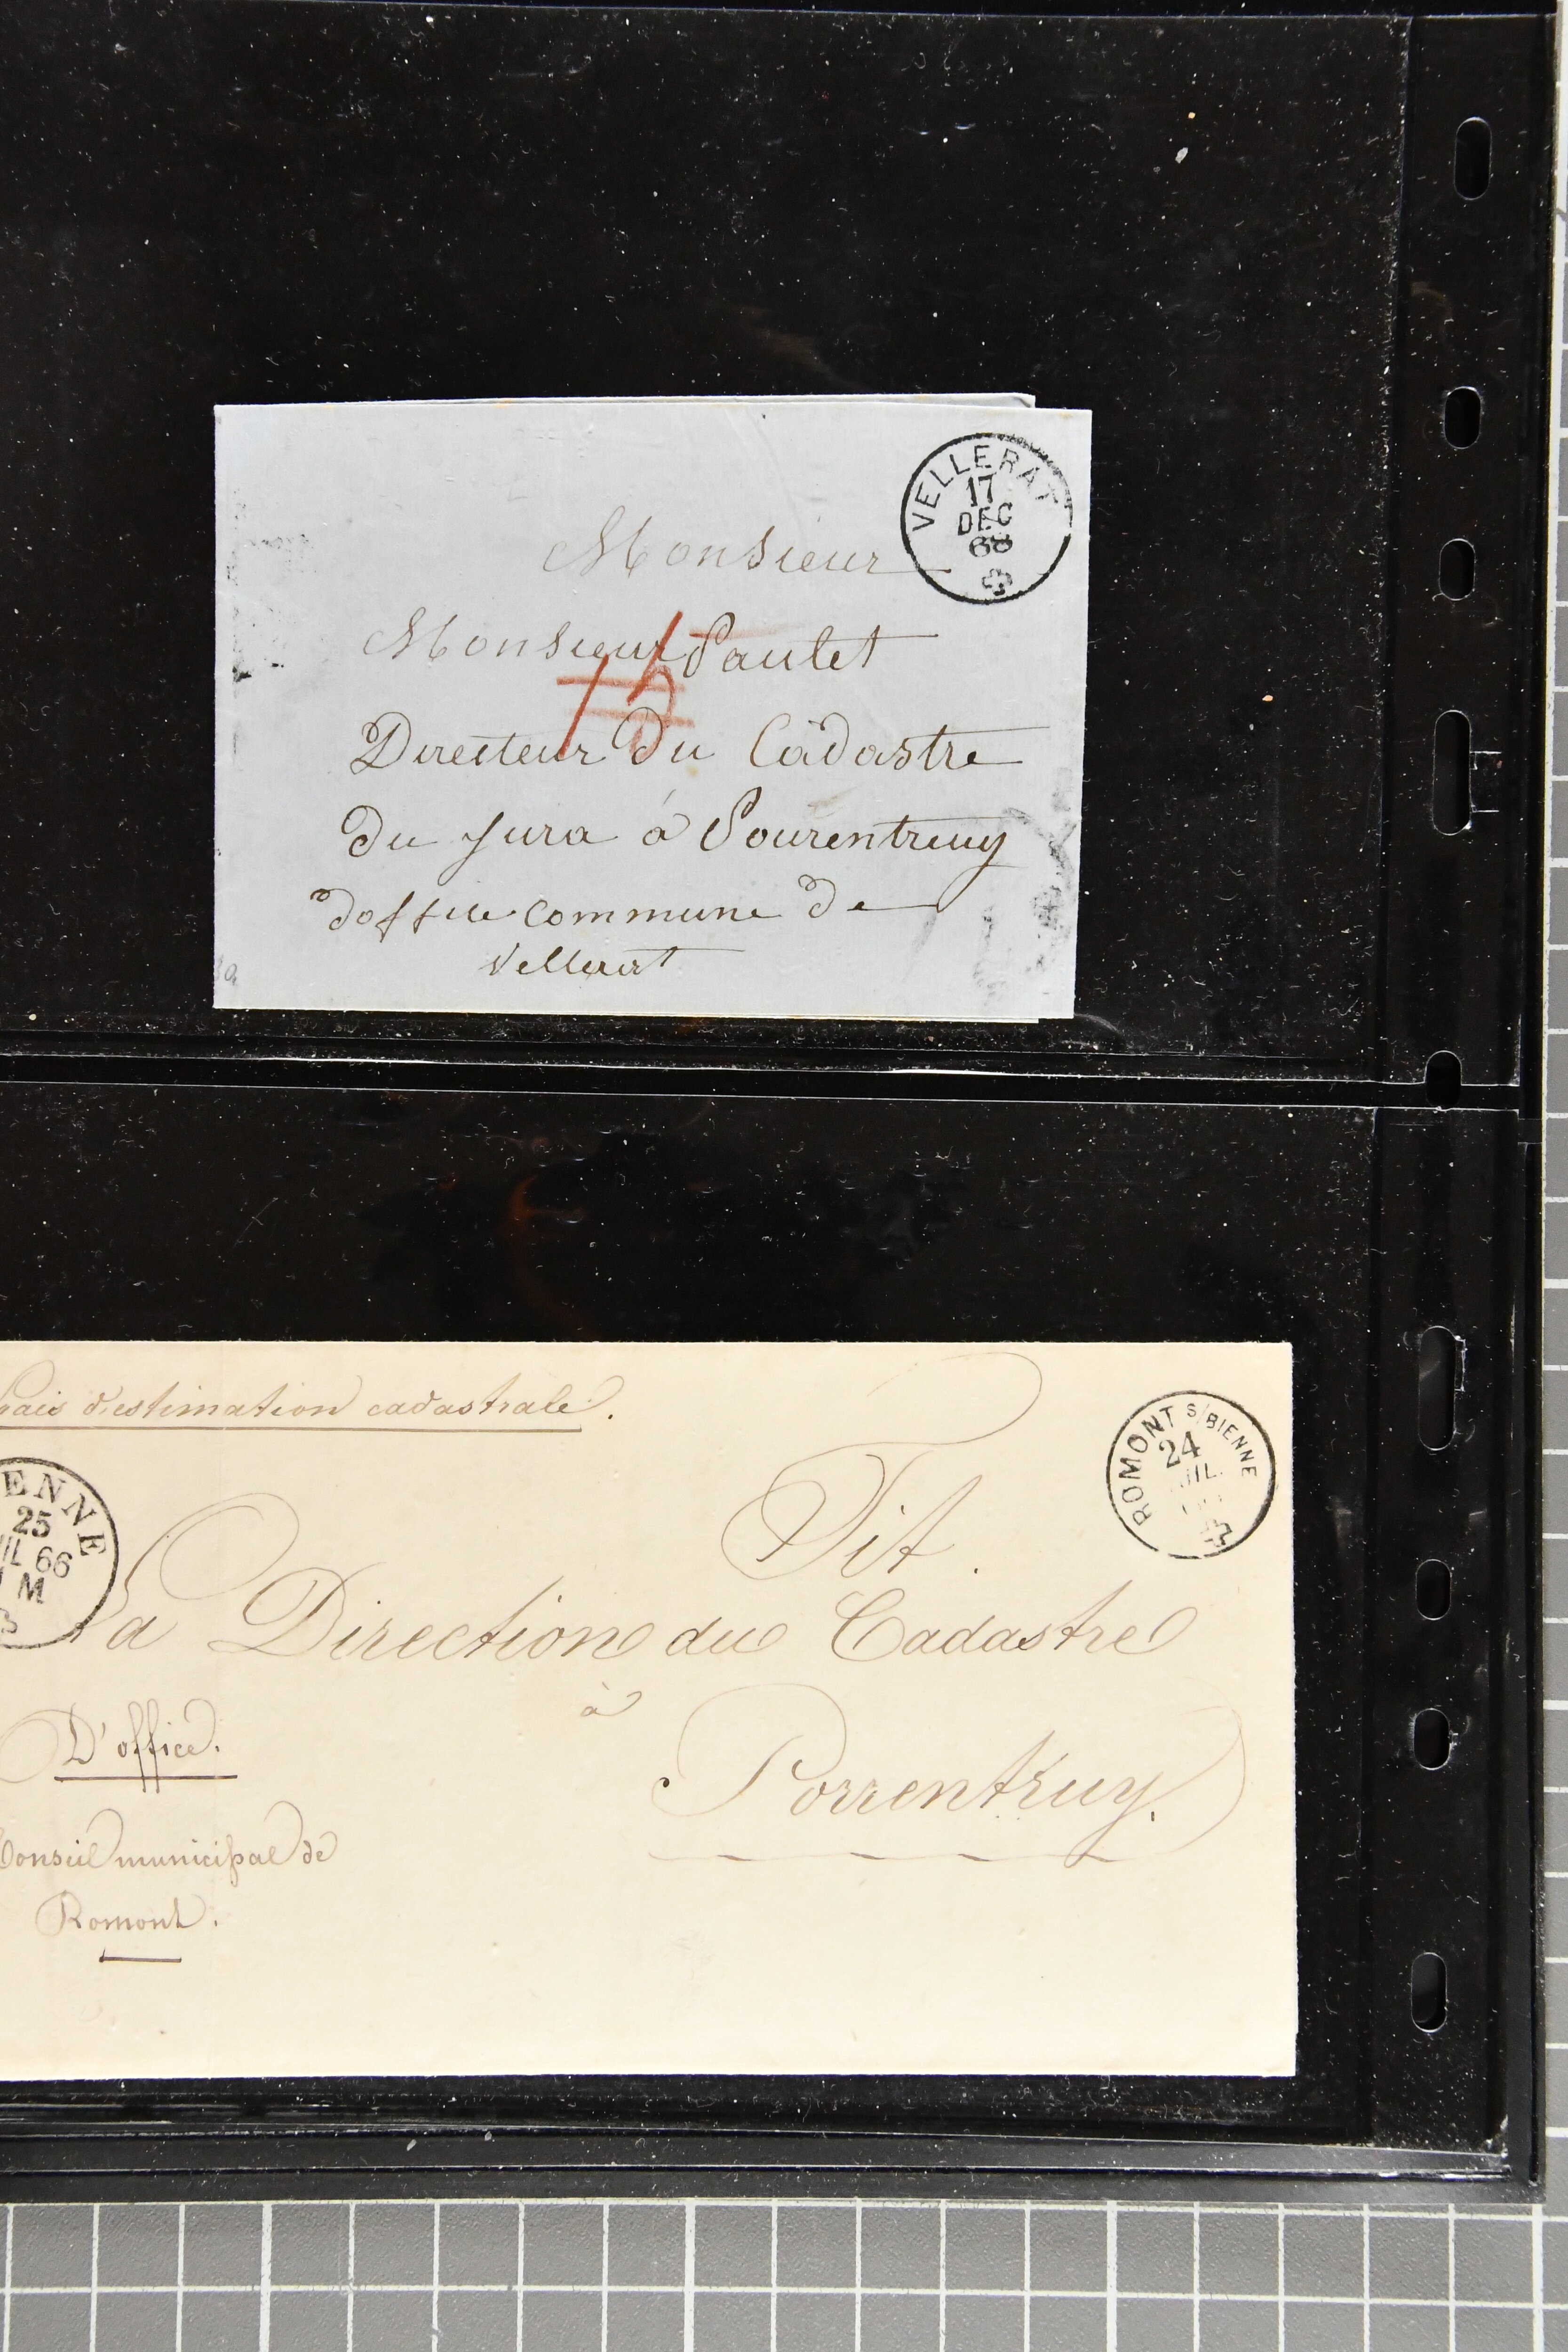 VELLERAT
17
DEC
68
Monsieur
Monsieur Paulet
Directeur du Cadastre
du Jura à Pourentruy
doffice commune de
Vellerat
d'estimation cadastrale.
ROMONT S/BIENNE
24
ENNE
25
IL 66
M
Tit.
La Direction du Cadastre
à
Porrentruy.
D'office.
Conseil municipal de
Romont.